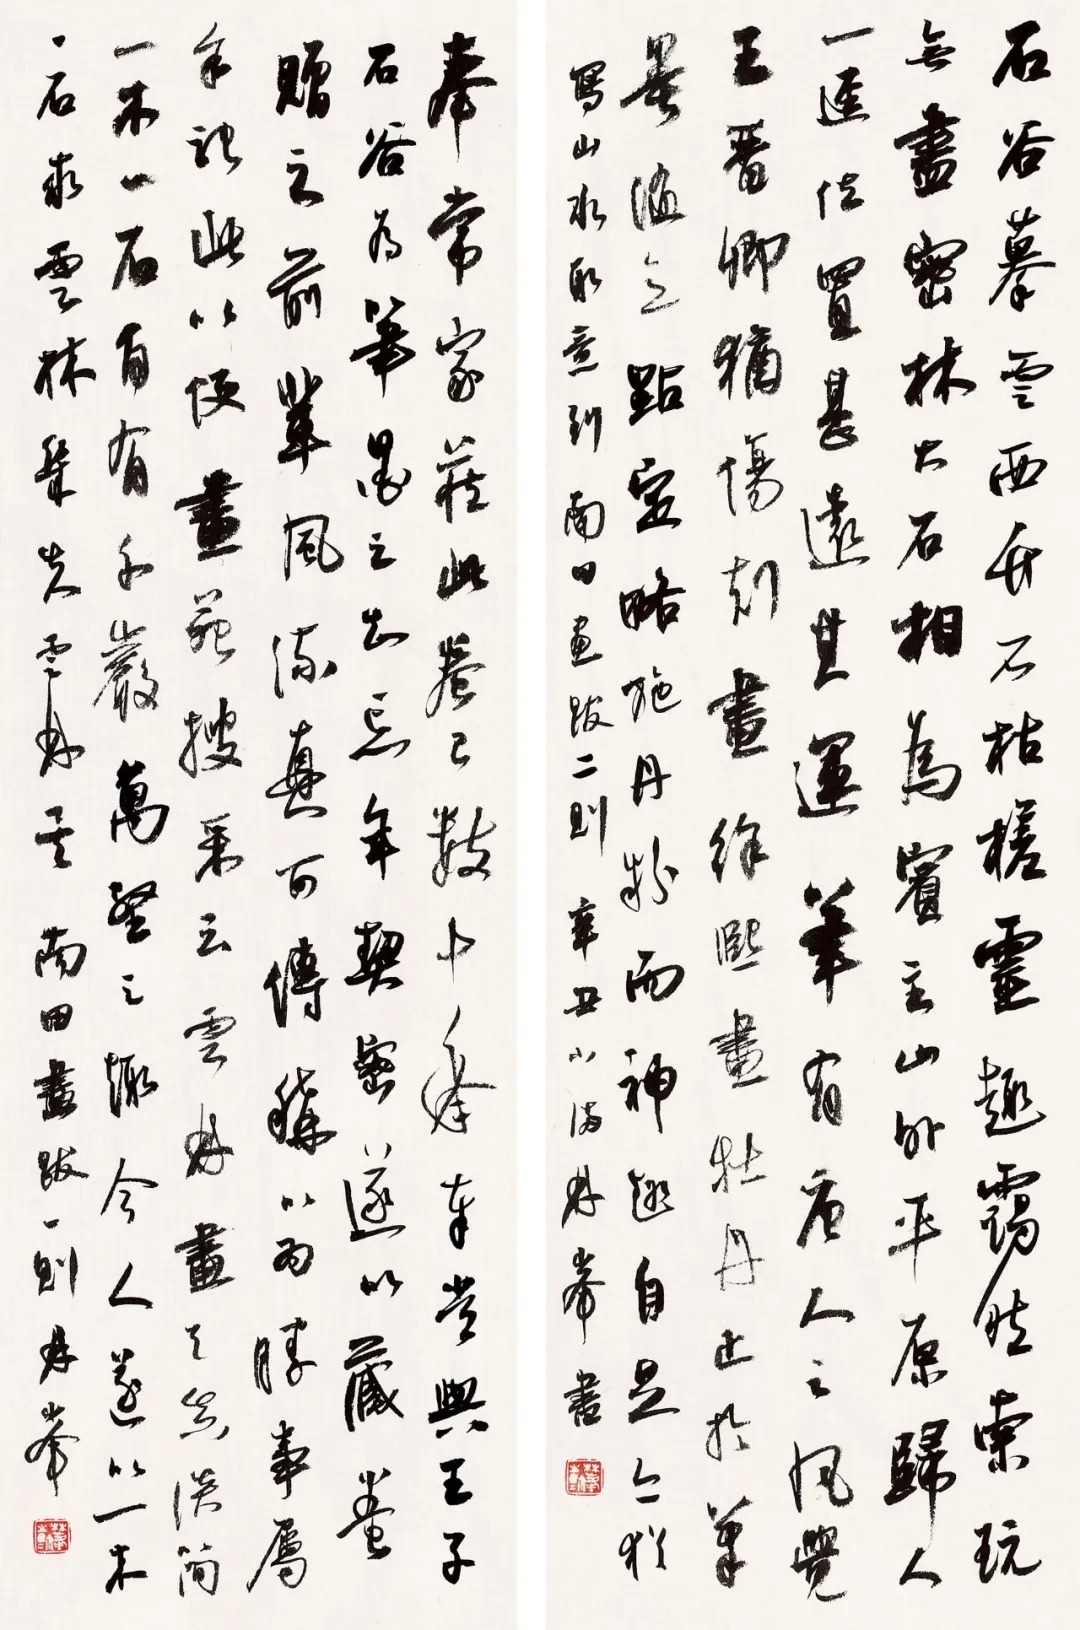 石谷摹雲西竹石枯槎靈趣靄然索玩
無盡密林大石相為賓主山外平原歸人
一逕位置甚遠其運筆有唐人之風覺
王晉卿猶傷刻畫徐熙畫牡丹止於筆
墨隨意點定略施丹粉而神趣自足亦猶
寫山水取意到 南田畫跋二則 辛丑小滿 峯書
奉常家藏此卷已數十年奉嘗與王子
石谷為筆墨之知忘年契密遂以藏卷
贈之前輩風流真可傳稱以為勝事屬
余記此以便畫苑搜采云雲林畫天真澹簡
一木一石自有千巖萬壑之趣今人遂以一木
一石求雲林幾失雲林矣 南田畫跋一則 峯